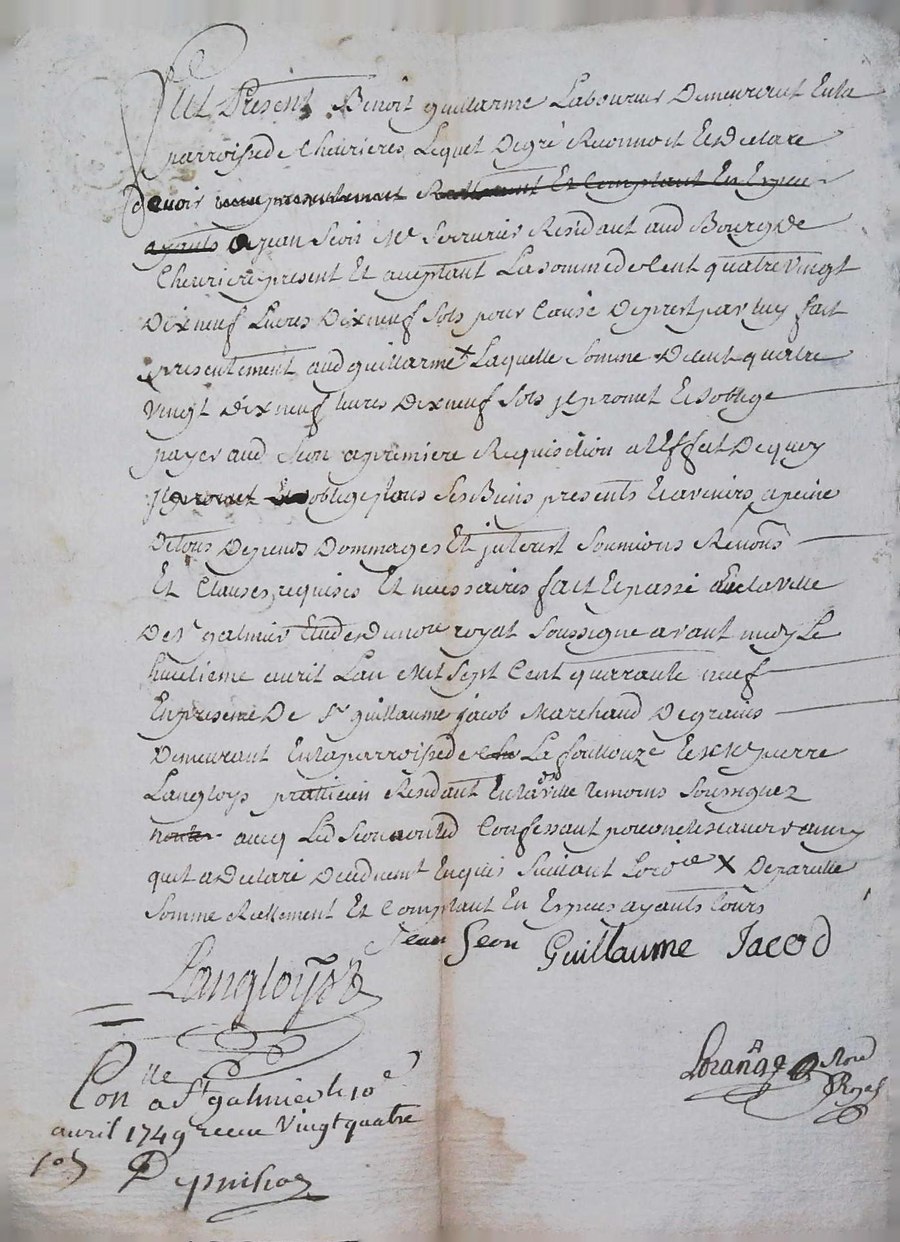 Fut Présent Benoit guillarme Laboureur Demeurent En la
parroisse de Cheurieres Lequel De gré Reconnoit Et Declare
devoir presentement Reellement Et Comptant En Espeu
ayants a jean Seon Me Serrurier Residant aud Bourg de
Cheuriere present Et aceptant La somme de Cent quatre vingt
Dix neuf Liures Dix neuf sols pour Cause De prest par luy fait
presentement aud guillarme x Laquelle somme De Cent quatre
vingt dix neuf liures Dix neuf sols jl promet Et soblige
payer aud Seon a premiere Requisition a lEffet De quoy
jl promet Et soblige tous Ses Biens presents Et avenirs a peine
De tous Depends Dommages Et jnterest Soumions Renons
Et Clauses requises Et necessaires fait Et passé en la ville
De St galmier Etude Du nore royal Soussigne avant midy Le
huitieme avril Lan Mil Sept Cent quarante neuf
En presence De Sr guillaume jacob Marchand De grains
Demeurant En la parroisse de La fouillouze Et Me pierre
Langloys pratticien Residant En lad ville temoins Soussignez
avecq Led Seon non led Confessant pour ne scavoir
quil a Declaré De ce duemt Enquis Suivant Lordce X De pareille
Somme Reellement Et Comptant En Espeus ayants Cours
Jean Seon Guillaume Jacod
Langloys
Lorange Nore
Royal
Conlle a St galmier le 10e
avril 1749 receu Vingt quatre
sols
Depuihoz